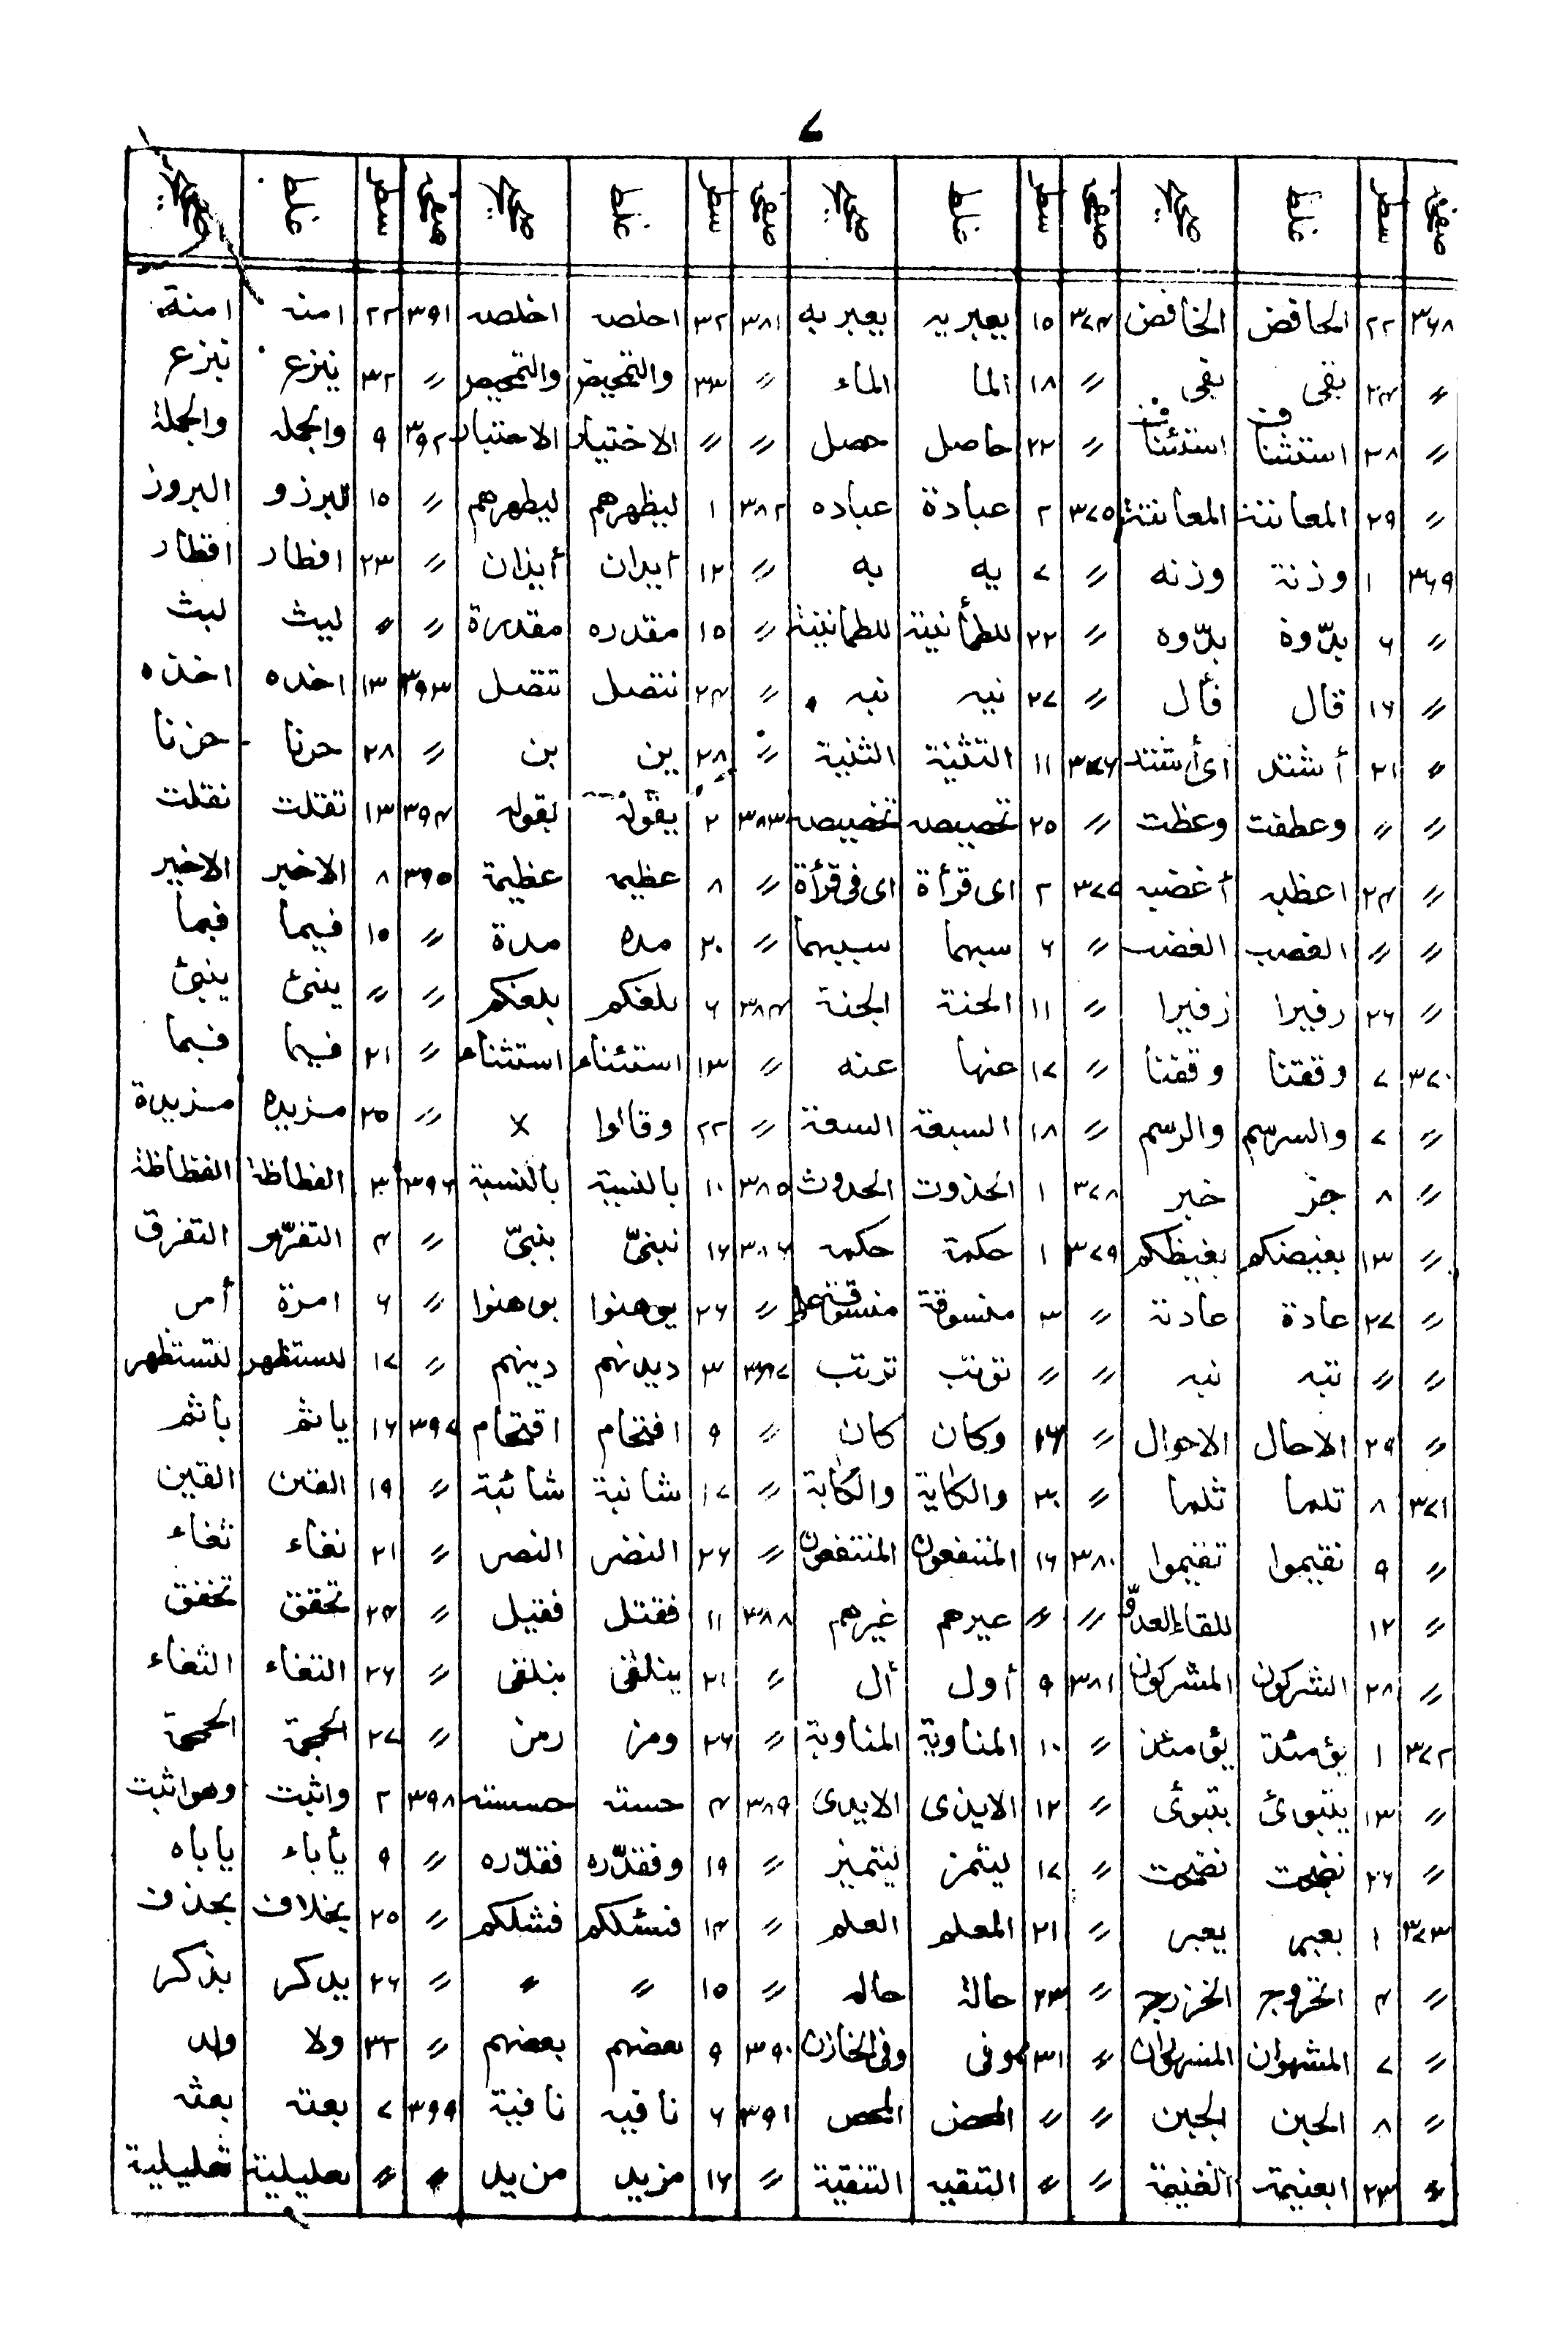 ٧
صفحہ سطر غلط صحیح صفحہ سطر غلط صحیح صفحہ سطر غلط صحیح صفحہ سطر غلط صحیح
٣٦٨ ٢٢ الحافض الخافض ٣٧٤ ١٥ يعبريه يعبر به ٣٨١ ٣٢ احلصه اخلصه ٣٩١ ٢٢ امنه امنة
〃 ٢٤ بقى بقى 〃 ١٨ الما الماء 〃 ٣٣ والتمحيض والتمحيص 〃 ٣٢ ينزع نبزع
〃 ٢٨ استثنا استئناف 〃 ٢٢ حاصل حصل 〃 〃 الاختيار الاختبار ٣٩٢ ٩ والجمله والجملة
〃 ٢٩ المعانته المعاينة ٣٧٥ ٢ عبادة عباده ٣٨٢ ١ ليظهرهم ليطهرهم 〃 ١٥ للبرزو البروز
٣٦٩ ١ وزنة وزنه 〃 ٧ يه به 〃 ١٢ أيدان أيذان 〃 ٢٣ افطار اقطار
〃 ٦ بدّوة بدّوه 〃 ٢٢ للطمأنية للطمانينة 〃 ١٥ مقدره مقدرة 〃 〃 ليث لبث
〃 ١٦ قال فأل 〃 ٢٧ نيه نبه 〃 ٢٤ نتصل تتصل ٣٩٣ ١٣ اخده اخذه
〃 ٢١ أشتد اى أشتد ٣٧٦ ١١ التثنية الثنية 〃 ٢٨ ين بن 〃 ٢٨ حرنا حزنا
〃 〃 وعطفت وعظت 〃 ٢٥ تحصيصه تخصيصه ٣٨٣ ٢ يقوله بقوله ٣٩٤ ١٣ تقتلت نقلت
〃 ٢٤ اعظبه أغضبه ٣٧٧ ٢ اى قرأة اى فى قرأة 〃 ٨ عظيمه عظيمة ٣٩٥ ٨ الاخبر الاخير
〃 〃 القصب الغضب 〃 ٦ سبهما سببهما 〃 ٢٠ مده مدة 〃 ١٥ فيما فبما
〃 ٢٦ رفيرا زفيرا 〃 ١١ الحنة الجنة ٣٨٤ ٦ بلغكم بلغكم 〃 〃 ينئ ينبئ
٣٧٠ ٧ وقفتنا وقفتنا 〃 ١٧ عنها عنه 〃 ١٣ استئناء استثناء 〃 ٢١ فيما فبما
〃 ٧ والسرسم والرسم 〃 ١٨ السبعة السعة 〃 ٢٢ وقالوا × 〃 ٢٥ مزيده مزيدة
〃 ٨ خبر ٣٧٨ ١ الحذوث الحدوث ٣٨٥ ١٠ بالنسبة بالنسبة ٣٩٦ ٣ الفطاظة الفظاظة
〃 ١٣ بغيضكم بغيظكم ٣٧٩ ١ حكمة حكمه ٣٨٦ ١٦ 〃 ٤ التفرق
〃 ٢٧ عادة عادته 〃 ٣ منسوقة 〃 ٢٦ يوهنوا بوهنوا 〃 ٦ امرة أمر
〃 〃 نتبه نبه 〃 〃 ترتب ٣٨٧ ٣ ديدنهم دينهم 〃 ١٧ للستظهر لتستظهر
〃 ٢٩ الاحال الاحوال 〃 ١٤ وكان كان 〃 ٩ افتحام اقتحام ٣٩٧ ١٦ ياثم بأثم
٣٧١ ٨ تلما ثلما 〃 ٣٠ والكاية والكابة 〃 ١٧ شانبة شائبة 〃 ١٩ الفتن القين
〃 ٩ نقيموا تقيموا ٣٨٠ ١٦ المنتفعون 〃 ٢٦ النضر النصر 〃 ٢١ نغاء ثغاء
〃 ١٢ للقاء العدوّ 〃 〃 عيرهم غيرهم ٣٨٨ ١١ فقتل فقيل 〃 ٢٤ تحقق تخفق
〃 ٢٨ الشركون المشركون ٣٨١ ٩ أول أل 〃 ٢١ يتلقى 〃 ٢٦ التغاء الثغاء
٣٧٢ ١ يؤمئذ يؤمئذ 〃 ١٠ المناوية المناوبة 〃 ٢٦ ومز رمز 〃 ٢٧ الحجة
〃 ١٣ يتبوئ بتبوئ 〃 ١٢ الايذى الايدى ٣٨٩ ٤ حسته ٣٩٨ ٢ واثبت وهو اثبت
〃 ٢٦ 〃 ١٧ ليتمز ليتميز 〃 ١٩ وفقدّره فقدّره 〃 ٩ يأباء ياباه
٣٧٣ ١ بعبر يعبر 〃 ٢١ المعلم العلم 〃 ١٤ فشلككم فشلكم 〃 ٢٥ بخلاف بحذف
〃 ٤ الخروج الخزرج 〃 ٢٣ حالة حاله 〃 ١٥ 〃 〃 〃 ٢٦ يدكر يذكر
〃 ٧ المشهوان 〃 ٣١ وفى وفى الخازن ٣٩٠ ٩ بعضهم بعضهم 〃 ٣٢ ولا ولد
〃 ٨ الحبن الجبن 〃 〃 المحض المحص ٣٩١ ٦ نافيه نافية ٣٩٩ ٧ بعته بعثه
〃 ٢٣ ابغنيمة الغنيمة 〃 〃 التنقيه التنقية 〃 ١٦ مزيد من يد 〃 〃 تعليلية تحليلية